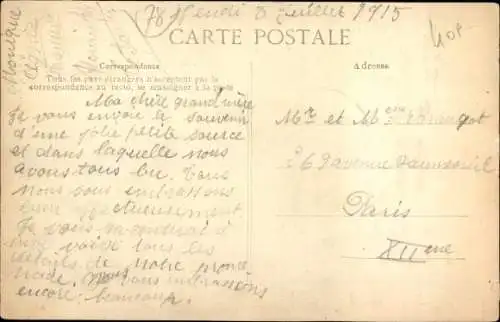 Jeudi 8 Juillet 1915
Monique
CARTE POSTALE
Correspondance
Adresse
Tous les pays étrangers n'acceptent pas la
correspondance au recto, se renseigner à la poste
Ma chère grand'mère
Je vous envoie le souvenir
d'une jolie petite source
et dans laquelle nous
avons tous bu. Tous
nous vous embrassons
bien affectueusement.
Je vous
voici tous les
détails de notre
nade. Nous vous embrassons
encore beaucoup.
Mr et Mme
avenue Daumesnil
Paris
XIIeme